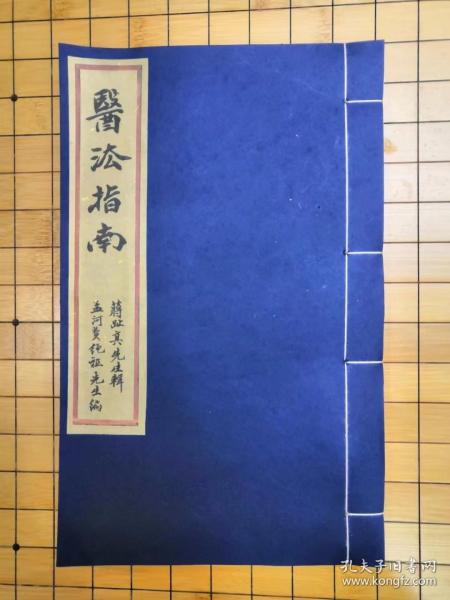 醫法指南
蔣趾真先生輯
孟河費绳祖先生編
孔夫子旧书网
www.kongfz.com